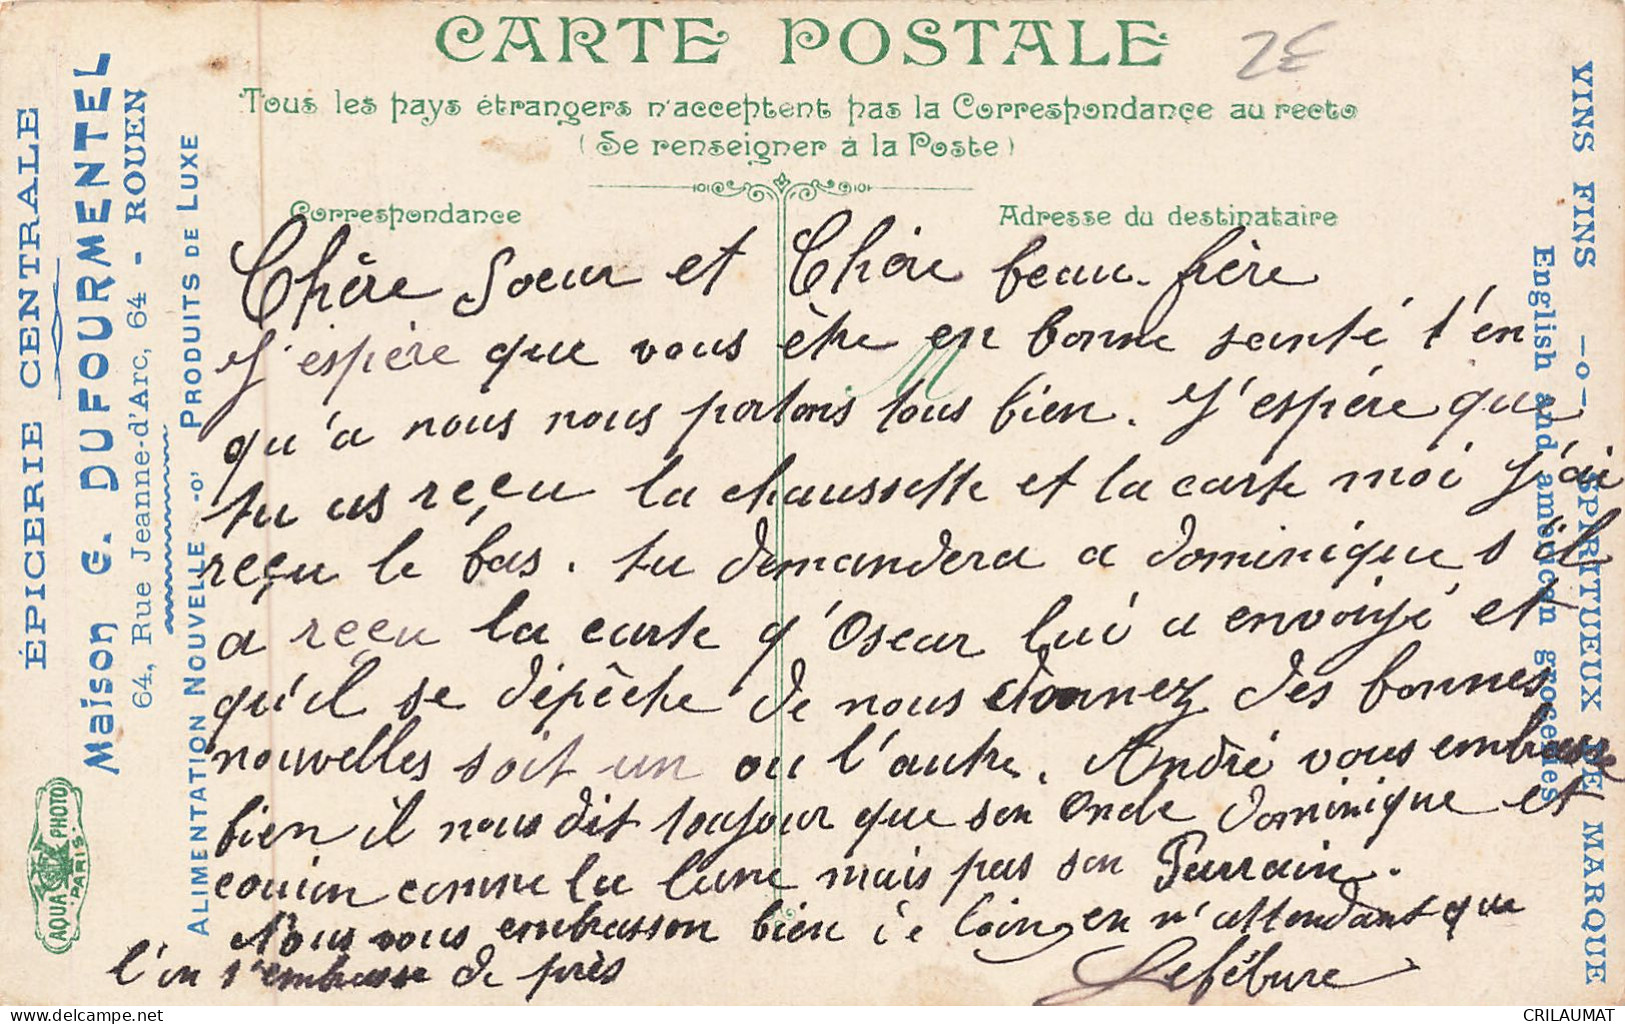 CARTE POSTALE
2E
Tous les pays étrangers n'acceptent pas la Correspondance au recto
(Se renseigner à la Poste)
Correspondance
Adresse du destinataire
ÉPICERIE CENTRALE
Maison G. DUFOURMENTEL
64, Rue Jeanne-d'Arc, 64 - ROUEN
ALIMENTATION NOUVELLE -o- PRODUITS DE LUXE
Chère Soeur et Chère beau-frère
J'espère que vous être en bonne santé t'en
qu'a nous nous portons tous bien. J'espère que
tu as reçu la chaussette et la carte moi j'ai
reçu le bas. tu demandera a dominique s'il
a reçu la carte q'Oscar lui a envoiyé et
qu'il se dépêche de nous donnez des bonnes
nouvelles soit un ou l'autre. André vous embrasse
bien il nous dit toujour que son Oncle dominique et
couion comme la lune mais pas son Parrain.
Nous vous embrasson bien de loing en n'attendant que
l'on t'embrasse de près
Lefébure
VINS FINS -o- SPIRITUEUX DE MARQUE
English and american groceries
AQUA PHOTO
PARIS
CRILAUMAT